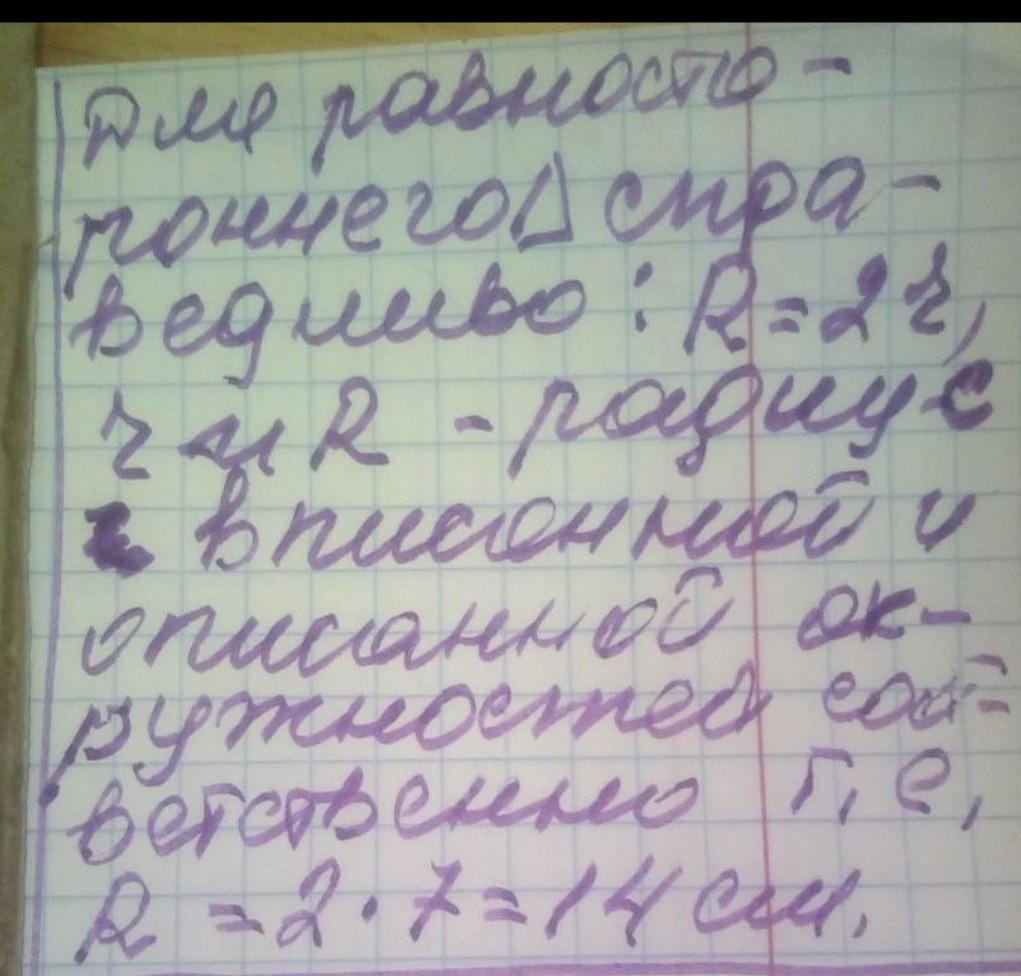 Для равносто-
роннего Δ спра-
ведливо: R=2r,
r и R - радиус
вписанной и
описанной ок-
ружностей соот-
ветственно т.е.
R = 2·7=14 см.